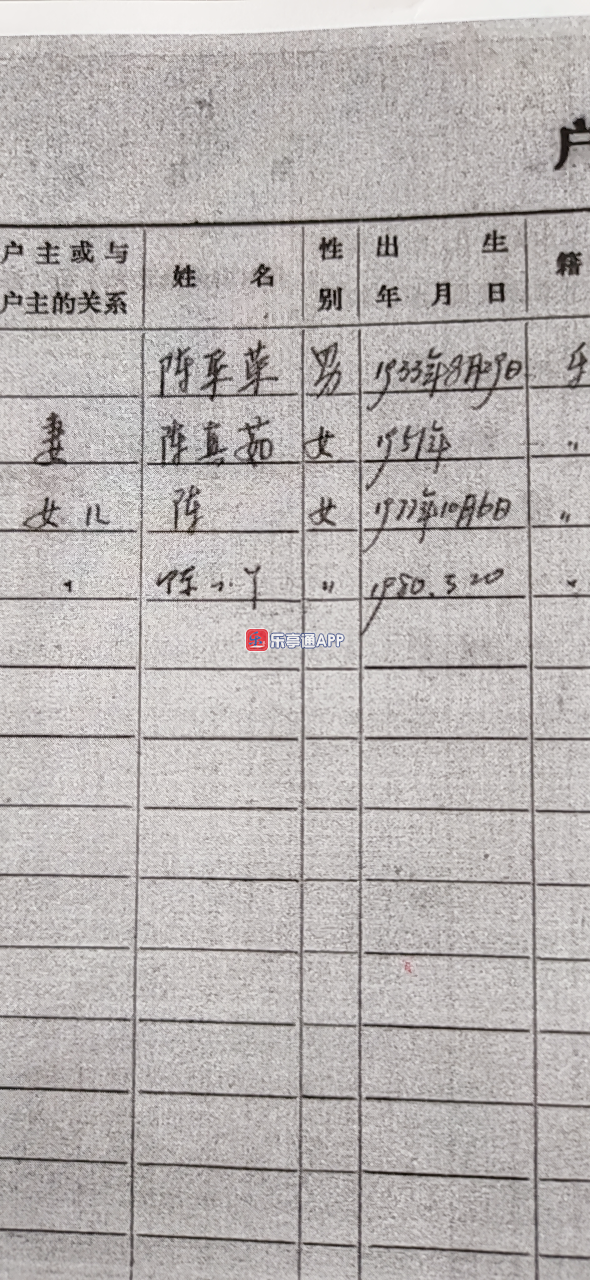 户
户主或与 姓 名 性 出 生 籍
户主的关系 别 年 月 日
陈 男 1933年8月29日 乐
妻 陈真茹 女 1951年 〃
女儿 陈 女 1977年10月6日 〃
〃 陈小丫 〃 1980.3.20 〃
乐亭通APP